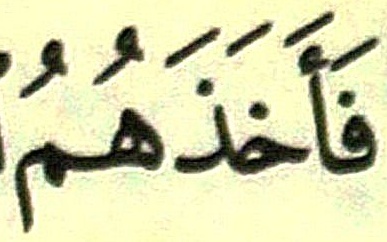 فَأَخَذَهُمُ